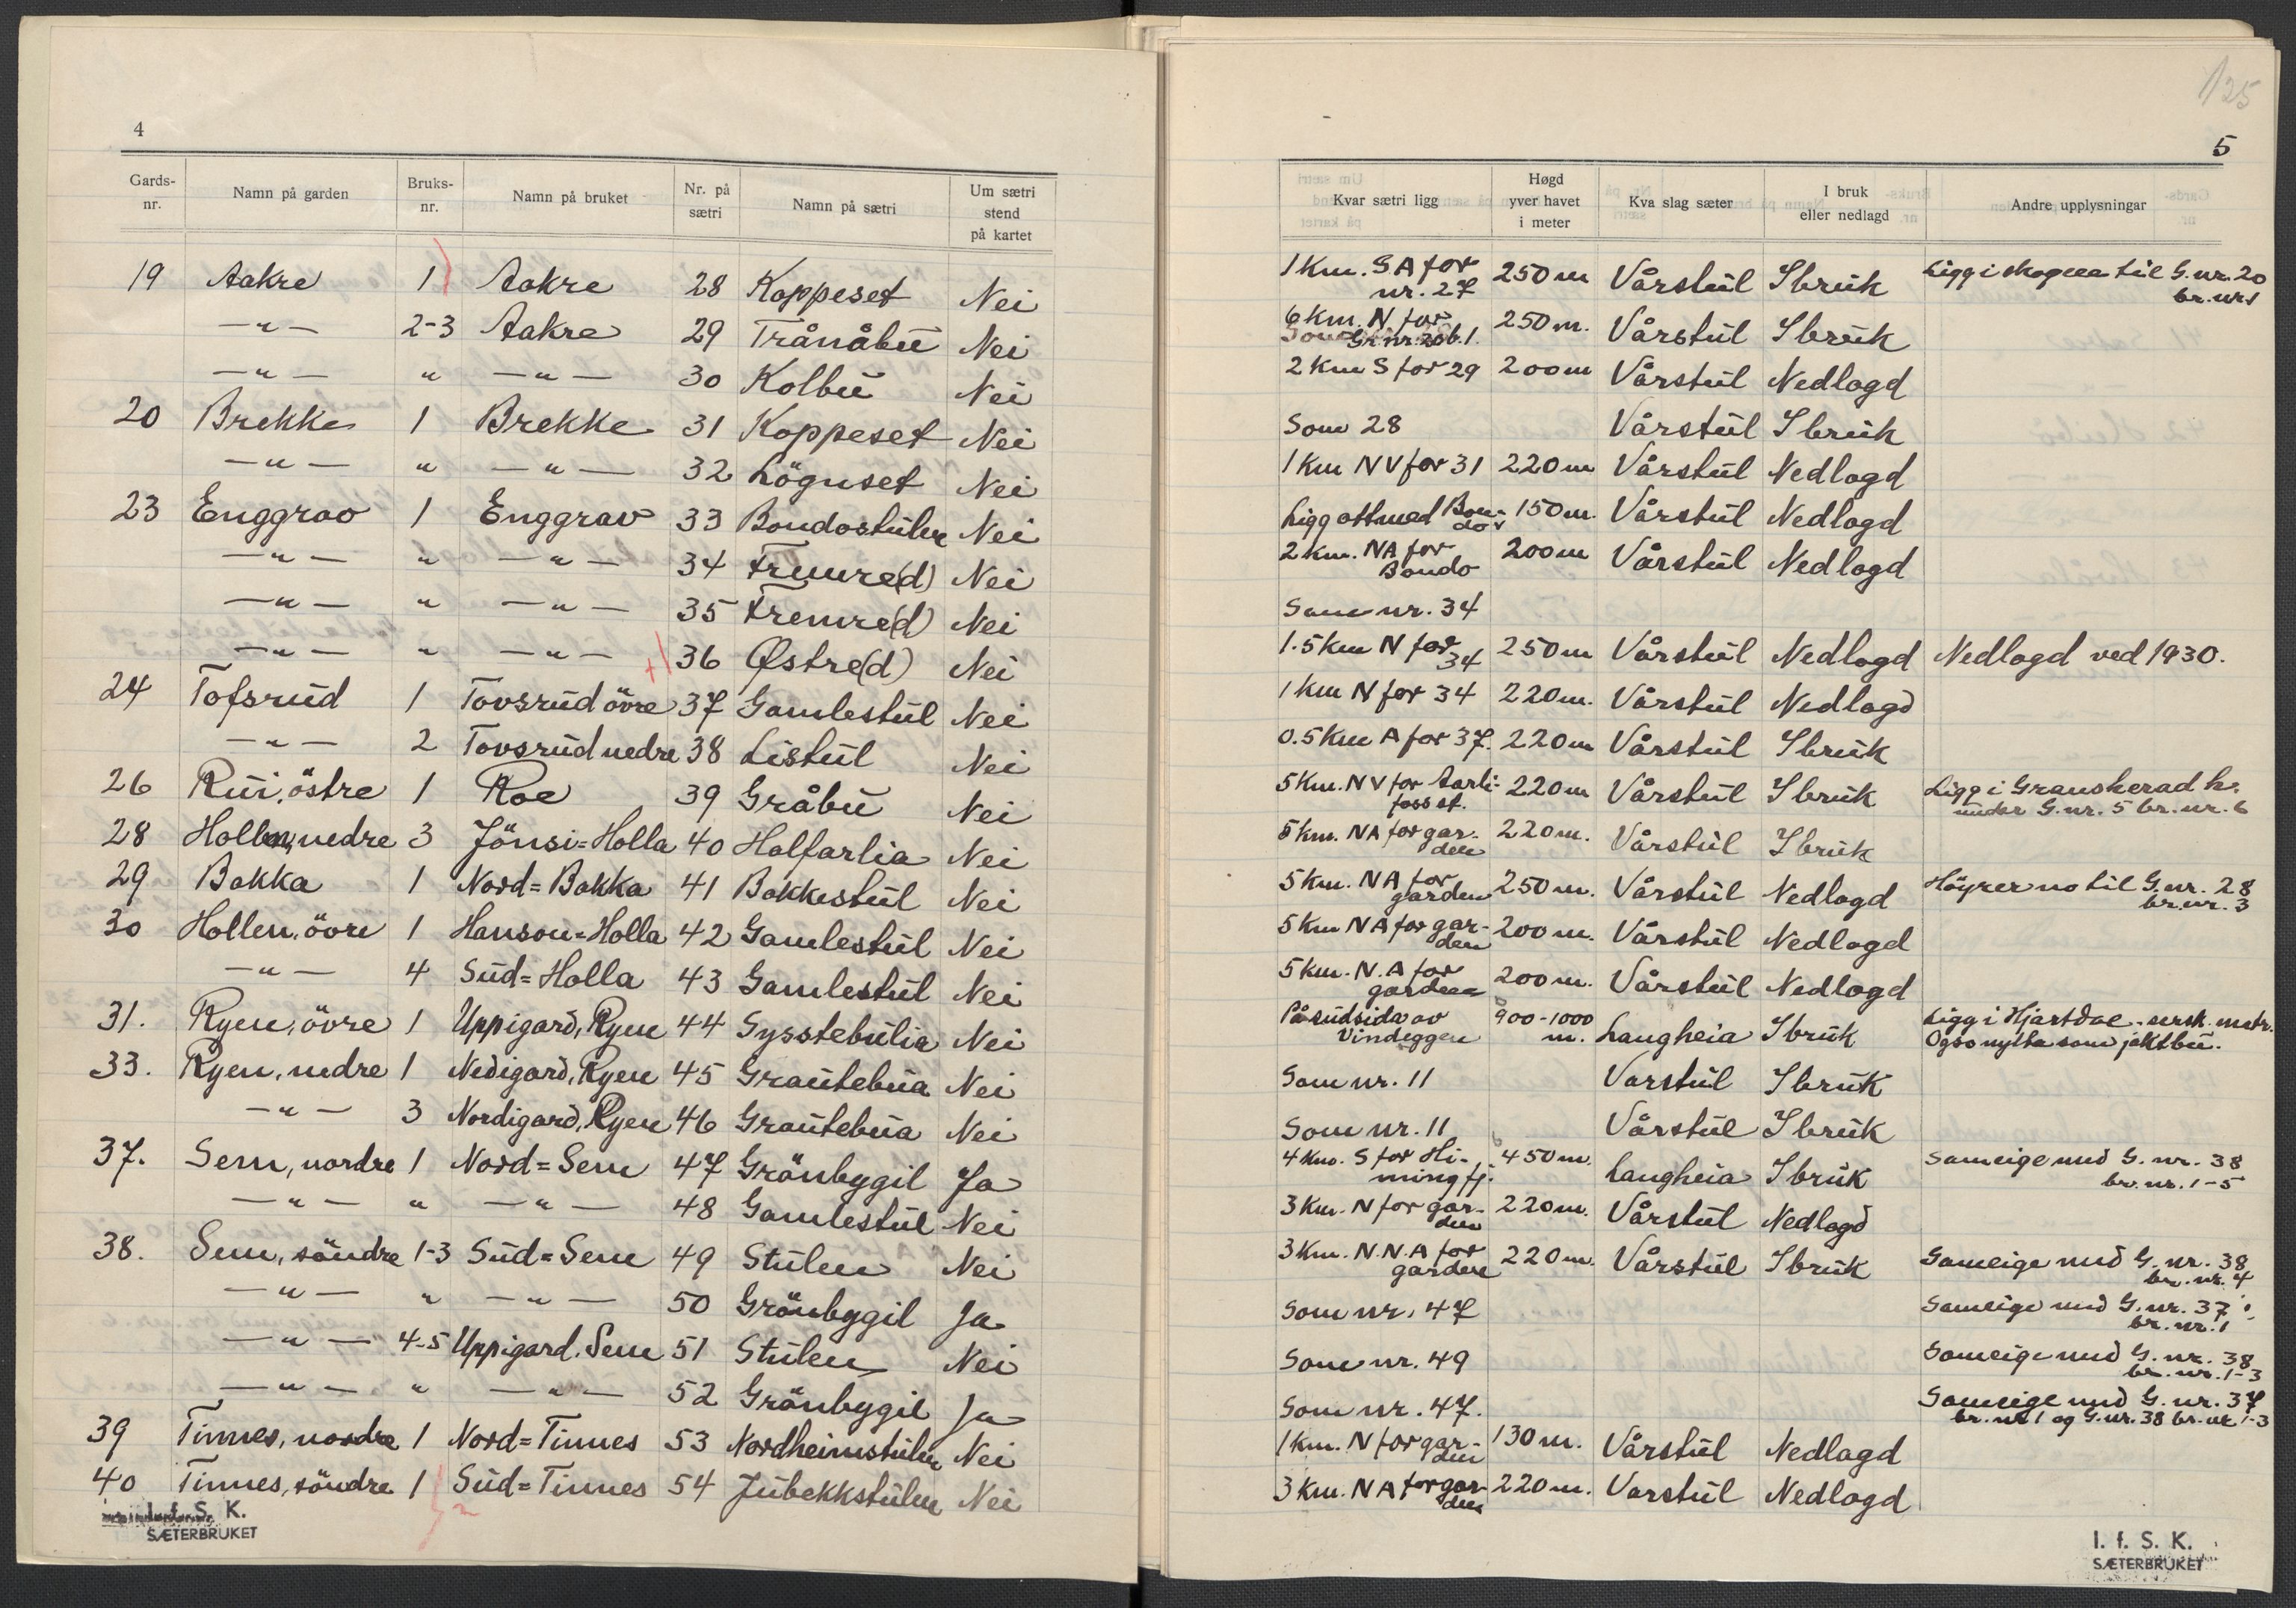 4
Gards-nr. Namn på garden Bruks-nr. Namn på bruket Nr. på sætri Namn på sætri Um sætri stend på kartet
19 Aakre 1 Aakre 28 Koppeset Nei
—"— 2-3 Aakre 29 Trånåbu Nei
—"— " —"— 30 Kolbu Nei
20 Brekke 1 Brekke 31 Koppeset Nei
—"— " —"— 32 Löguset Nei
23 Enggrav 1 Enggrav 33 Bondostulen Nei
—"— " —"— 34 Fremre(d) Nei
—"— " —"— 35 Fremre(d) Nei
—"— " —"— 36 Østre(d) Nei
24 Tofsrud 1 Tovsrud övre 37 Gamlestul Nei
—"— 2 Tovsrud nedre 38 Listul Nei
26 Rui, östre 1 Roe 39 Gråbu Nei
28 Hollen, nedre 3 Jönsi=Holla 40 Halfarlia Nei
29 Bakka 1 Nord=Bakka 41 Bakkestul Nei
30 Hollen, övre 1 Hanson=Holla 42 Gamlestul Nei
—"— 4 Sud=Holla 43 Gamlestul Nei
31. Ryen, övre 1 Uppigard, Ryen 44 Gysstebulia Nei
33. Ryen, nedre 1 Nedigard, Ryen 45 Grautebua Nei
—"— 3 Nordigard, Ryen 46 Grautebua Nei
37. Sem, nordre 1 Nord=Sem 47 Grönbygil Ja
—"— " —"— 48 Gamlestul Nei
38. Sem, söndre 1-3 Sud=Sem 49 Stulen Nei
—"— " —"— 50 Grönbygil Ja
—"— 4-5 Uppigard. Sem 51 Stulen Nei
—"— " —"— 52 Grönbygil Ja
39 Tinnes, nordre 1 Nord=Tinnes 53 Nordheimstulen Nei
40 Tinnes, söndre 1 Sud=Tinnes 54 Jubekkstulen Nei
I. f. S. K.
SÆTERBRUKET
125
5
Kvar sætri ligg Høgd yver havet i meter Kva slag sæter I bruk eller nedlagd Andre upplysningar
1 Km. S A for nr. 27 250 m Vårstul I bruk Ligg i skogen til G. nr. 20 br. nr 1
6 km. N for Gr. nr. 20 b. 1. 250 m. Vårstul I bruk
2 Km S for 29 200 m Vårstul Nedlagd
Som 28 Vårstul I bruk
1 Km N V for 31 220 m Vårstul Nedlagd
Ligg attmed Bondo 150 m. Vårstul Nedlagd
2 km. N A for Bondo 200 m Vårstul Nedlagd
Som nr. 34
1.5 Km N for 34 250 m Vårstul Nedlagd Nedlagd ved 1930.
1 Km N for 34 220 m. Vårstul Nedlagd
0.5 Km A for 37. 220 m Vårstul I bruk
5 Km. N V for Aarlifoss st. 220 m Vårstul I bruk Ligg i Gransherad h. under G. nr. 5 br. nr. 6
5 km. N A for garden 220 m. Vårstul I bruk
5 km. N A for garden 250 m. Vårstul Nedlagd Höyrer no til G. nr. 28 br. nr. 3
5 Km N A for garden 200 m. Vårstul Nedlagd
5 Km. N. A for garden 200 m. Vårstul Nedlagd
På sudsida av Vindeggen 900-1000 m. Langheia I bruk Ligg i Hjartdal - sersk. matr. Ogso nytta som jaktbu.
Som nr. 11 Vårstul I bruk
Som nr. 11 Vårstul I bruk
4 Km. S for Himingfj. 450 m. Langheia I bruk Sameige med G. nr. 38 br. nr. 1-5
3 Km. N for garden 220 m. Vårstul Nedlagd
3 Km. N. N. A for garden 220 m. Vårstul I bruk Sameige med G. nr. 38 br. nr. 4
Som nr. 47 Sameige med G. nr. 37 br. nr. 1
Som nr. 49 Sameige med G. nr. 38 br. nr. 1-3
Som nr. 47. Sameige med G. nr. 37 br. nr 1 og G. nr. 38 br. nr 1-3
1 Km. N for garden 130 m. Vårstul Nedlagd
3 Km. N A for garden 220 m. Vårstul Nedlagd
I. f. S. K.
SÆTERBRUKET